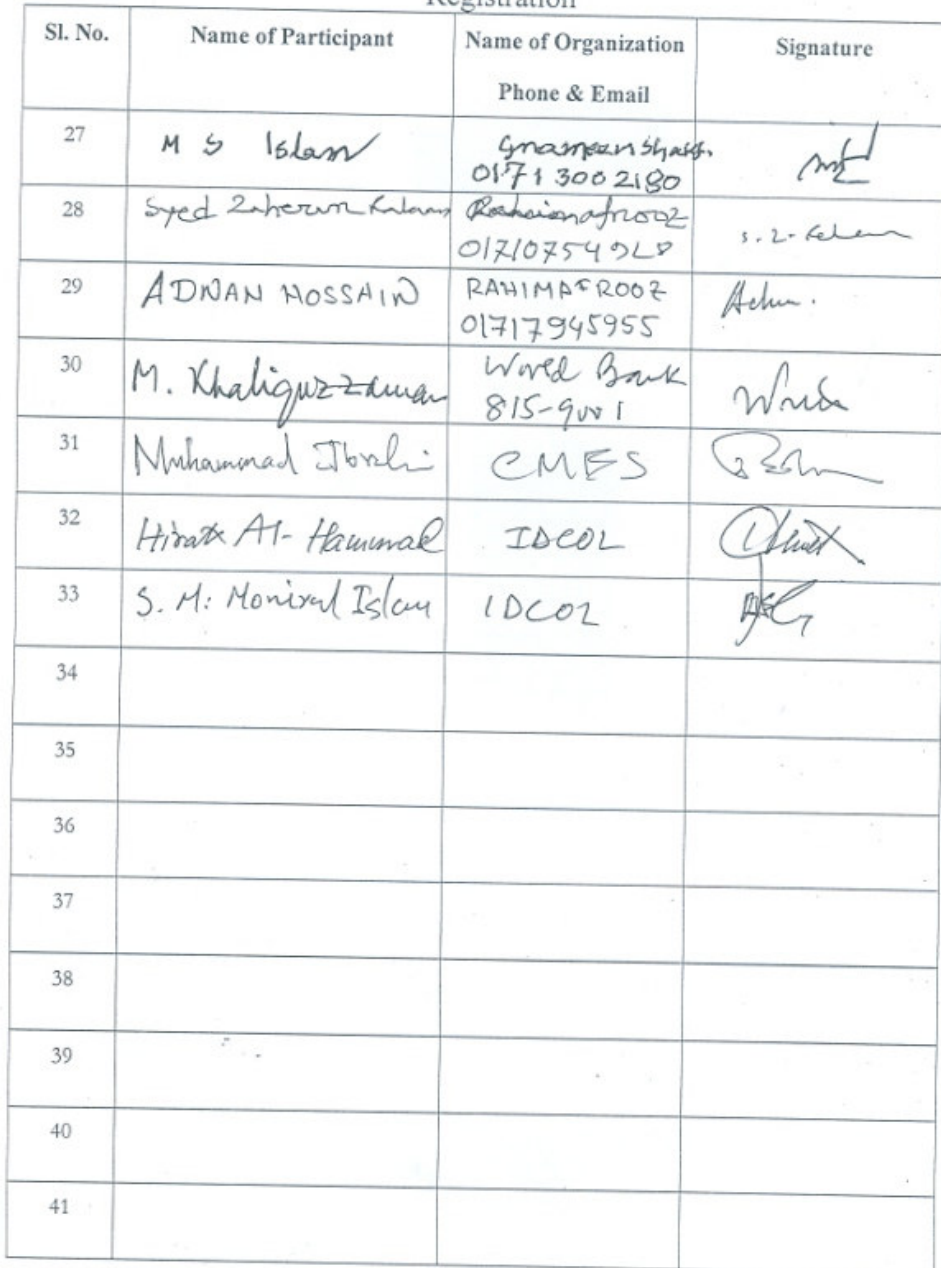 Registration
Sl. No. Name of Participant Name of Organization Signature
Phone & Email
27 M S Islam Grameen Shakti.
01713002180
28 Syed Zaherun Rahimafrooz
29 ADNAN HOSSAIN RAHIMAFROOZ
01717945955
30 M. Khaliquzzaman World Bank
815-9001
31 Muhammad Ibrahim CMES
32 Al-Hammad IDCOL
33 S. M. Monirul Islam IDCOL
34
35
36
37
38
39
40
41